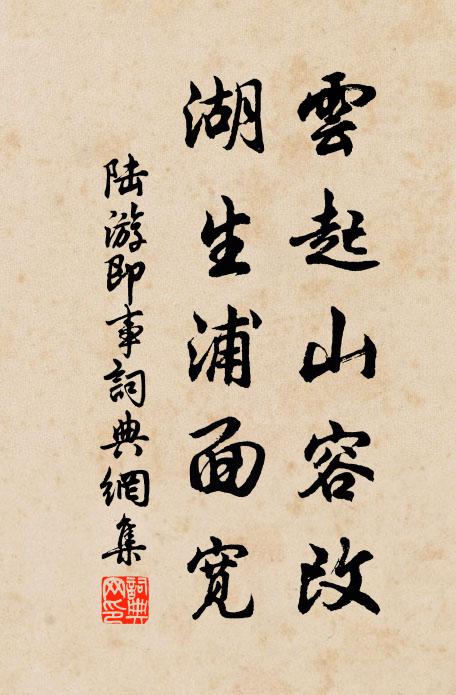 雲起山容改
湖生浦面寬
陸游即事詞典網集
詞典網印